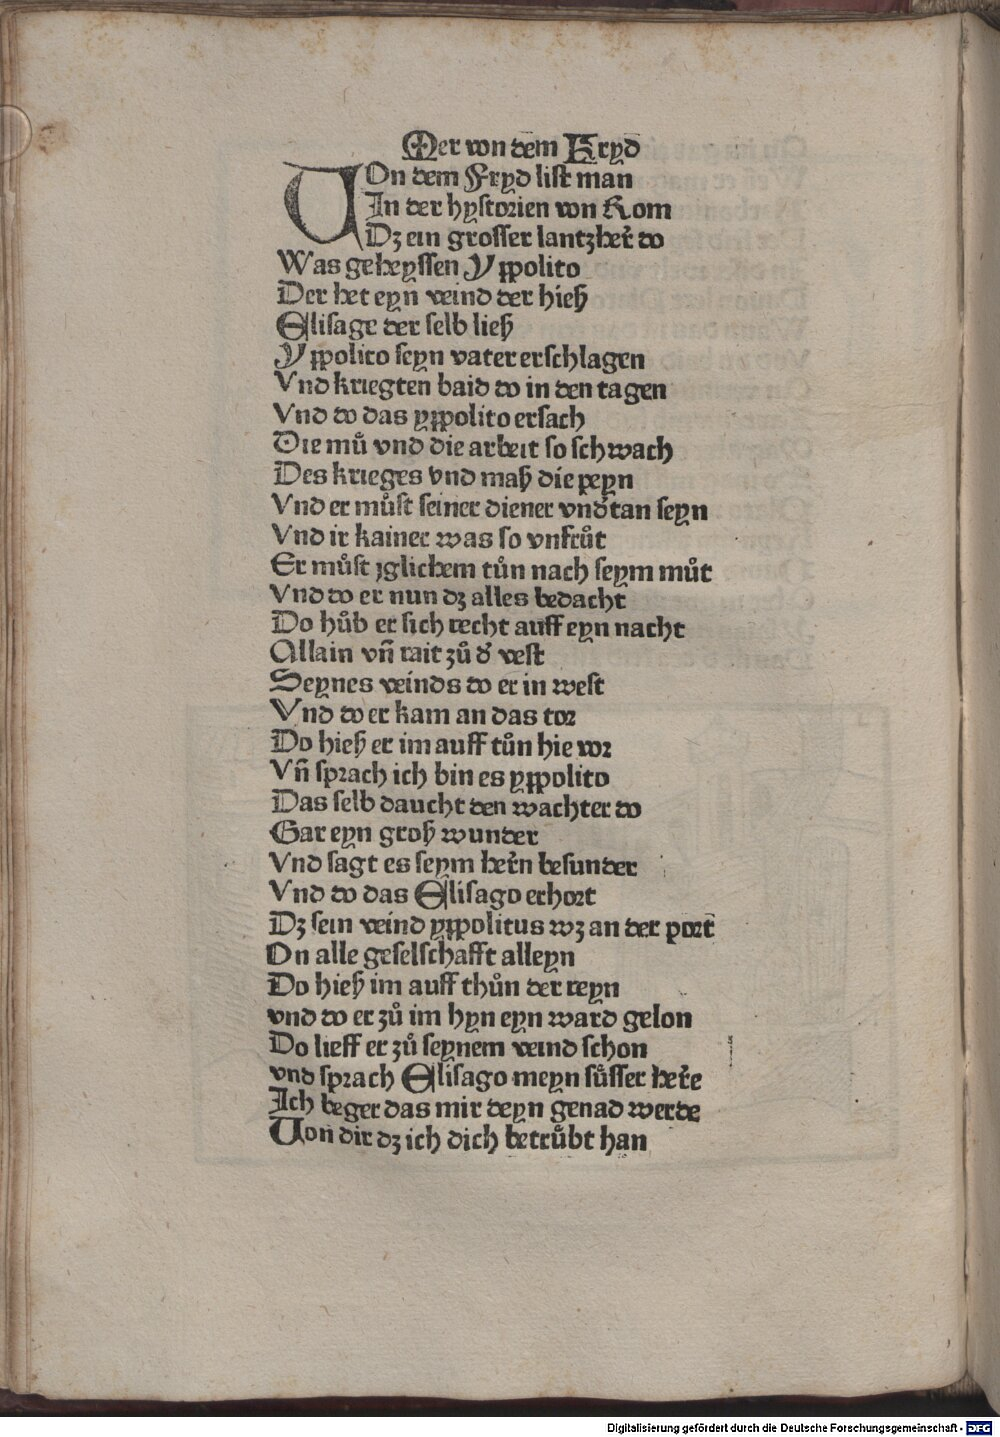 Mer von dem Fryd
VOn dem Fryd list man
In der hystorien von Rom
Dz ein grosser lantzher̃ do
Was geheyssen Yppolito
Der het eyn veind der hieß
Elisage der selb ließ
Yppolito seyn vater erschlagen
Vnd kriegten baid do in den tagen
Vnd do das yppolito ersach
Die mů vnd die arbeit so schwach
Des krieges vnd maß die peyn
Vnd er můst seiner diener vnd̓tan seyn
Vnd ir kainer was so vnfrůt
Er můst jglichem tůn nach seym můt
Vnd do er nun dz alles bedacht
Do hůb er sich recht auff eyn nacht
Allain vñ rait zů d̓ vest
Seynes veinds do er in west
Vnd do er kam an das tor
Do hieß er im auff tůn hie vor
Vñ sprach ich bin es yppolito
Das selb daucht den wachter do
Gar eyn groß wunder
Vnd sagt es seym her̃n besunder
Vnd do das Elisago erhort
Dz sein veind yppolitus wz an der port
On alle geselschafft alleyn
Do hieß im auff thůn der reyn
vnd do er zů im hyn eyn ward gelon
Do lieff er zů seynem veind schon
vnd sprach Elisago meyn sůsser her̃e
Ich beger das mir deyn genad werde
Von dir dz ich dich betrůbt han
Digitalisierung gefördert durch die Deutsche Forschungsgemeinschaft - DFG